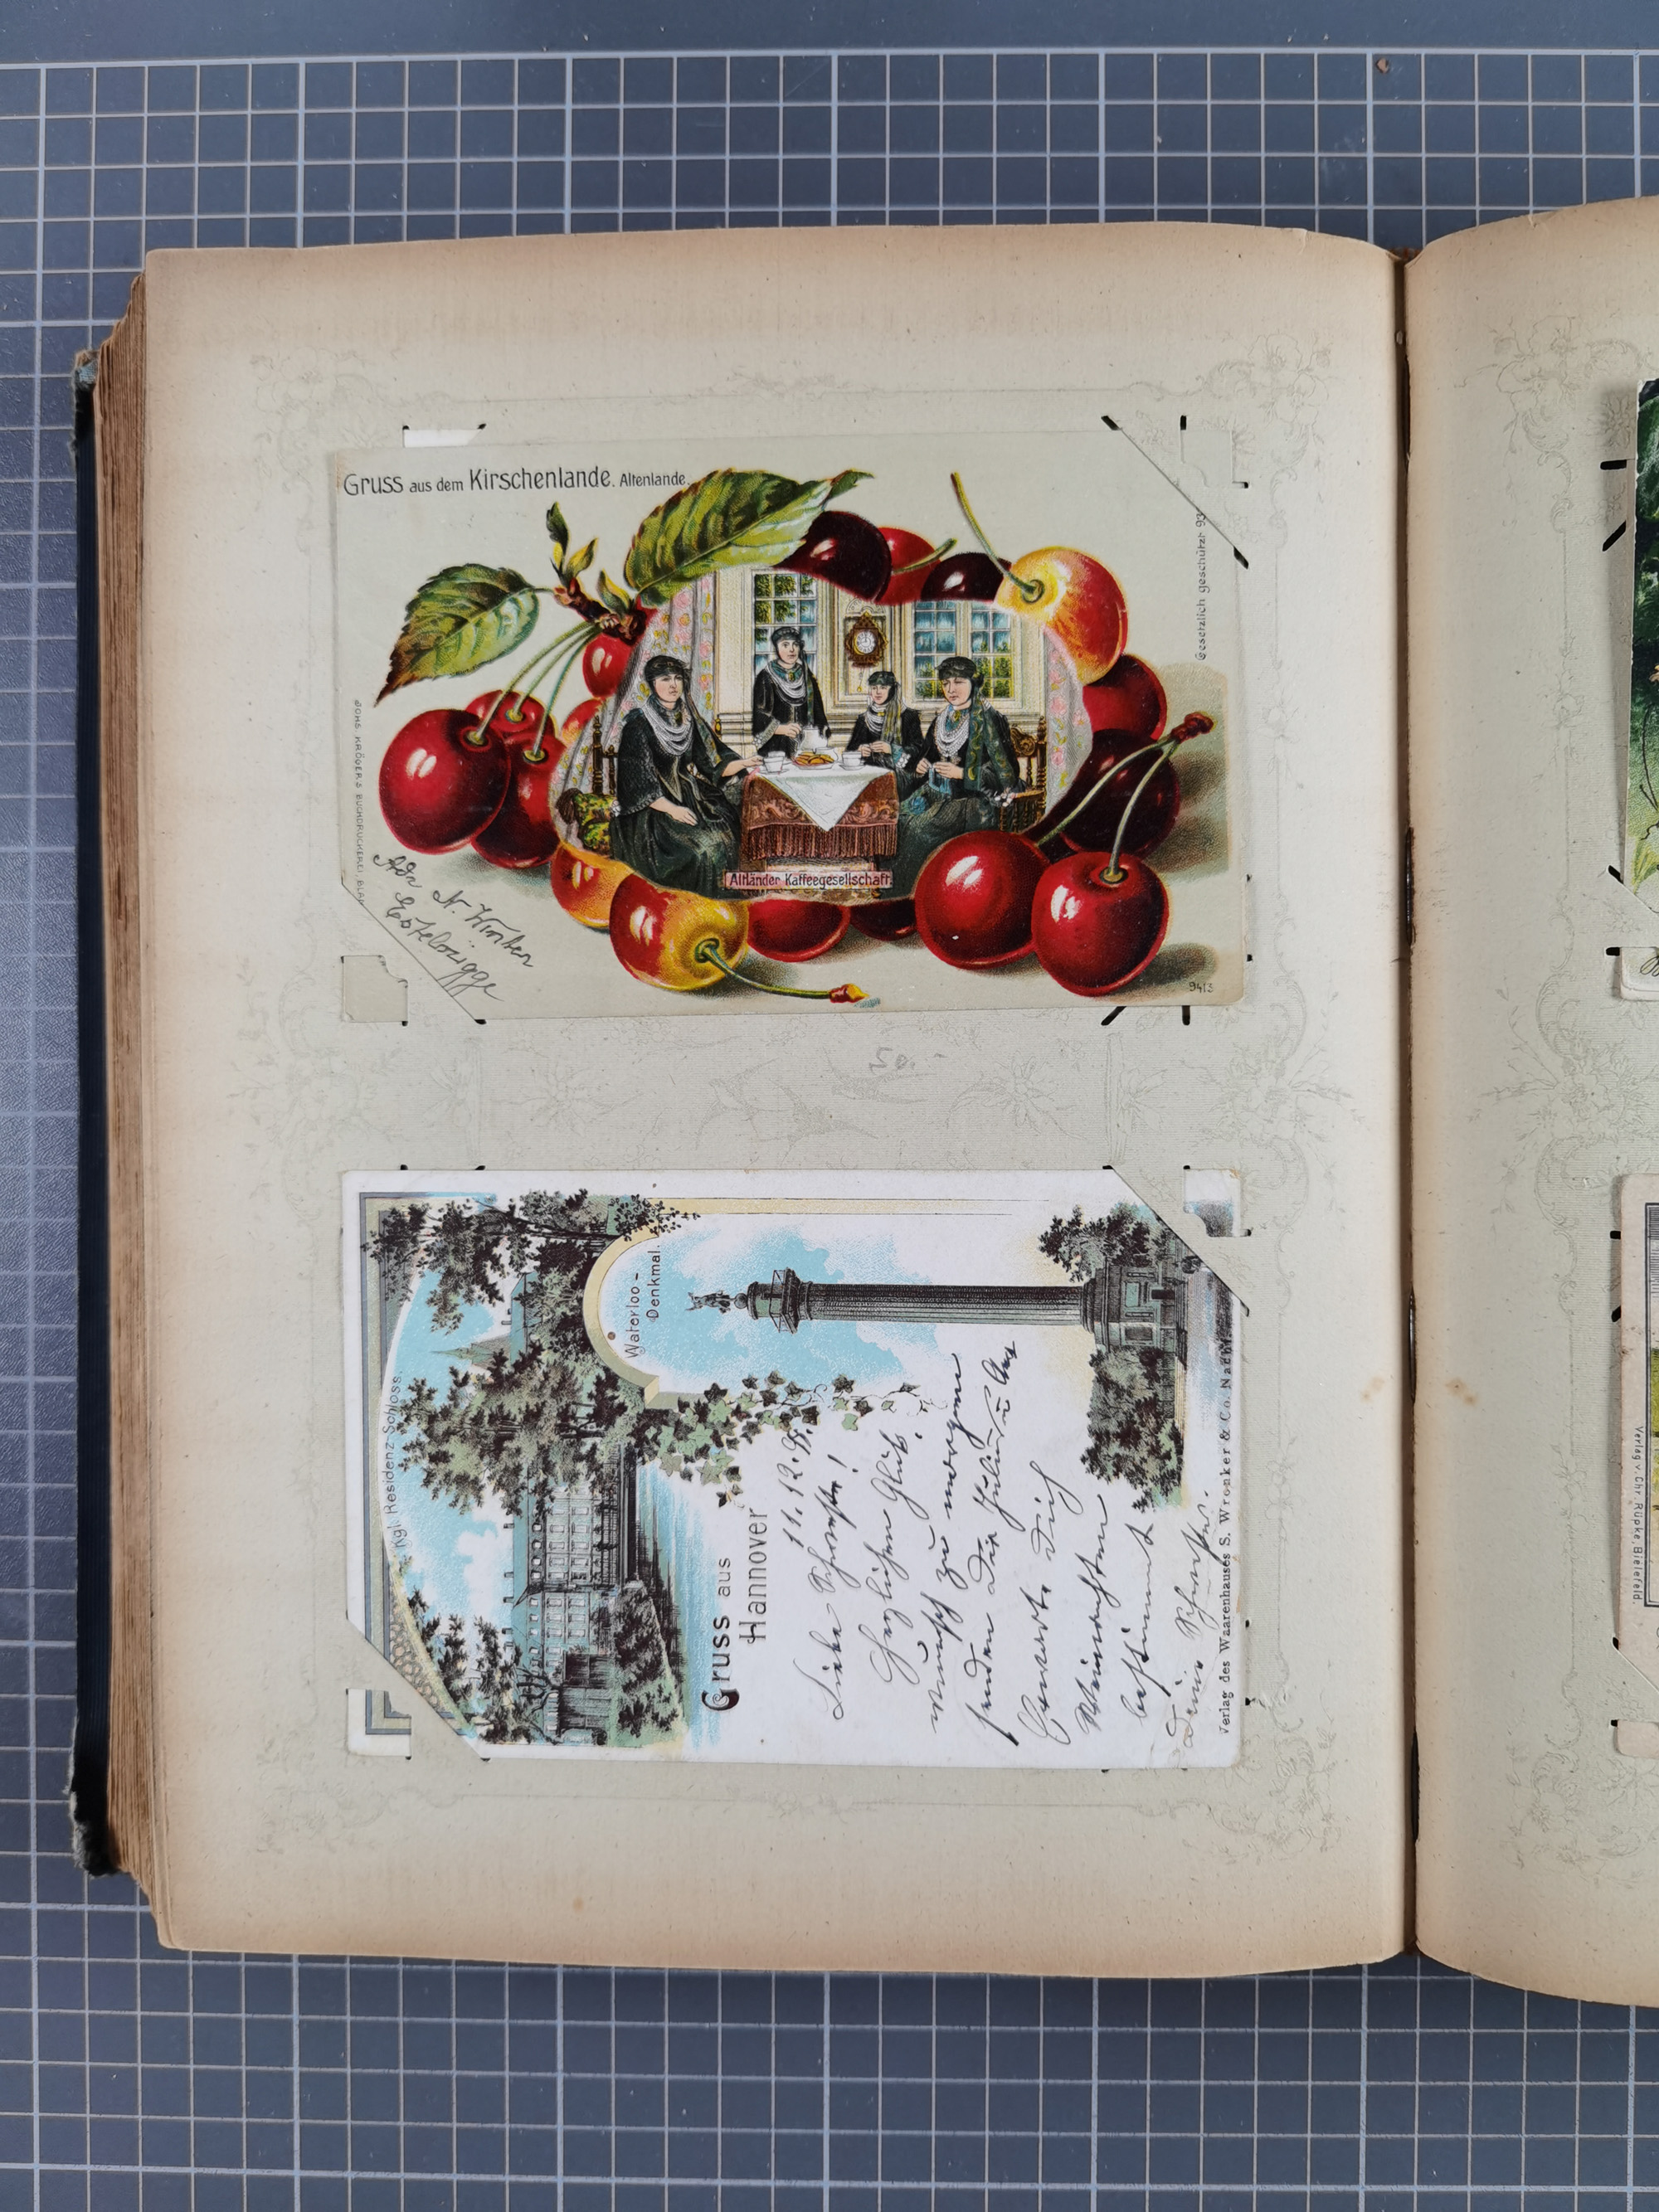 Gruss aus dem Kirschenlande. Altenlande.
Gesetzlich geschützt 93
JOHS. KRÖGERS BUCHDRUCKEREI, BLAN
Adr N. Winter
Estebrügge
Altländer Kaffeegesellschaft.
9413
50.-
Kgl. Residenz-Schloss.
Waterloo-
Denkmal.
Gruss aus
Hannover
11.12.98.
Liebe Schwester!
Herzlichen Glück-
wunsch zu morgen
senden Dir
Erwarte Dich
Weinachten
bestimmt.
Deine Schwester.
Verlag des Waarenhauses S. Wronker & Co. Nachf.
Verlag v. Chr. Rüpke, Bielefeld.